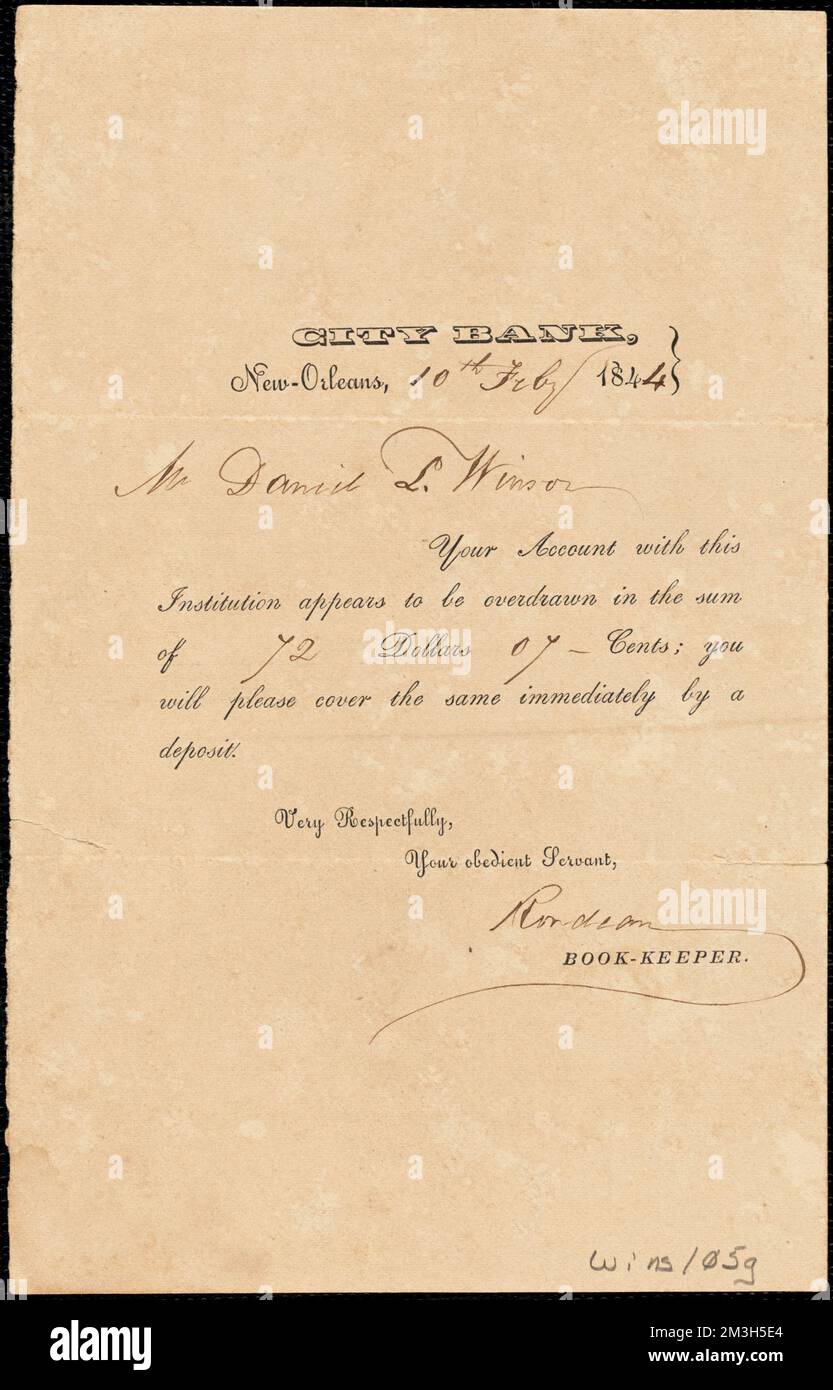 CITY BANK,
New-Orleans, 10th Feby 1844
Mr Daniel L. Winsor
Your Account with this
Institution appears to be overdrawn in the sum
of 72 Dollars 07 – Cents; you
will please cover the same immediately by a
deposit.
Very Respectfully,
Your obedient Servant,
Rondeau
BOOK-KEEPER.
Wins105g
alamy
Image ID: 2M3H5E4
www.alamy.com